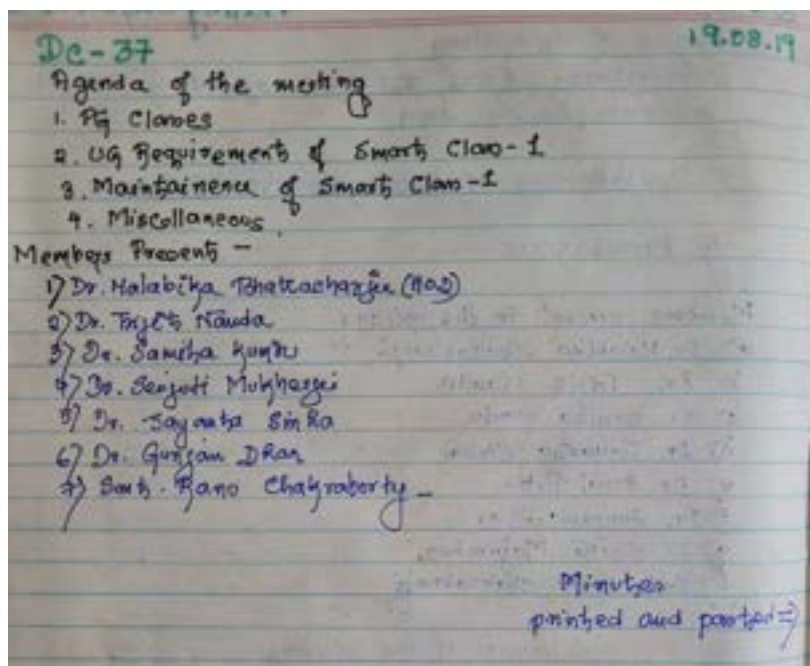 DC-37
19.08.19
Agenda of the meeting
1. PG Classes
2. UG Requirement of Smart Class-1
3. Maintainence of Smart Class-1
4. Miscellaneous.
Members Present -
1) Dr. Malabika Bhattacharjee (HOD)
2) Dr. Nanda
3) Dr. Samita Kundu
4) Dr. Senjuti Mukherjee
5) Dr. Sayanta Sinha
6) Dr. Gunjan Dhar
7) Smt. Rano Chakraborty -
Minutes
printed and pasted ⇒